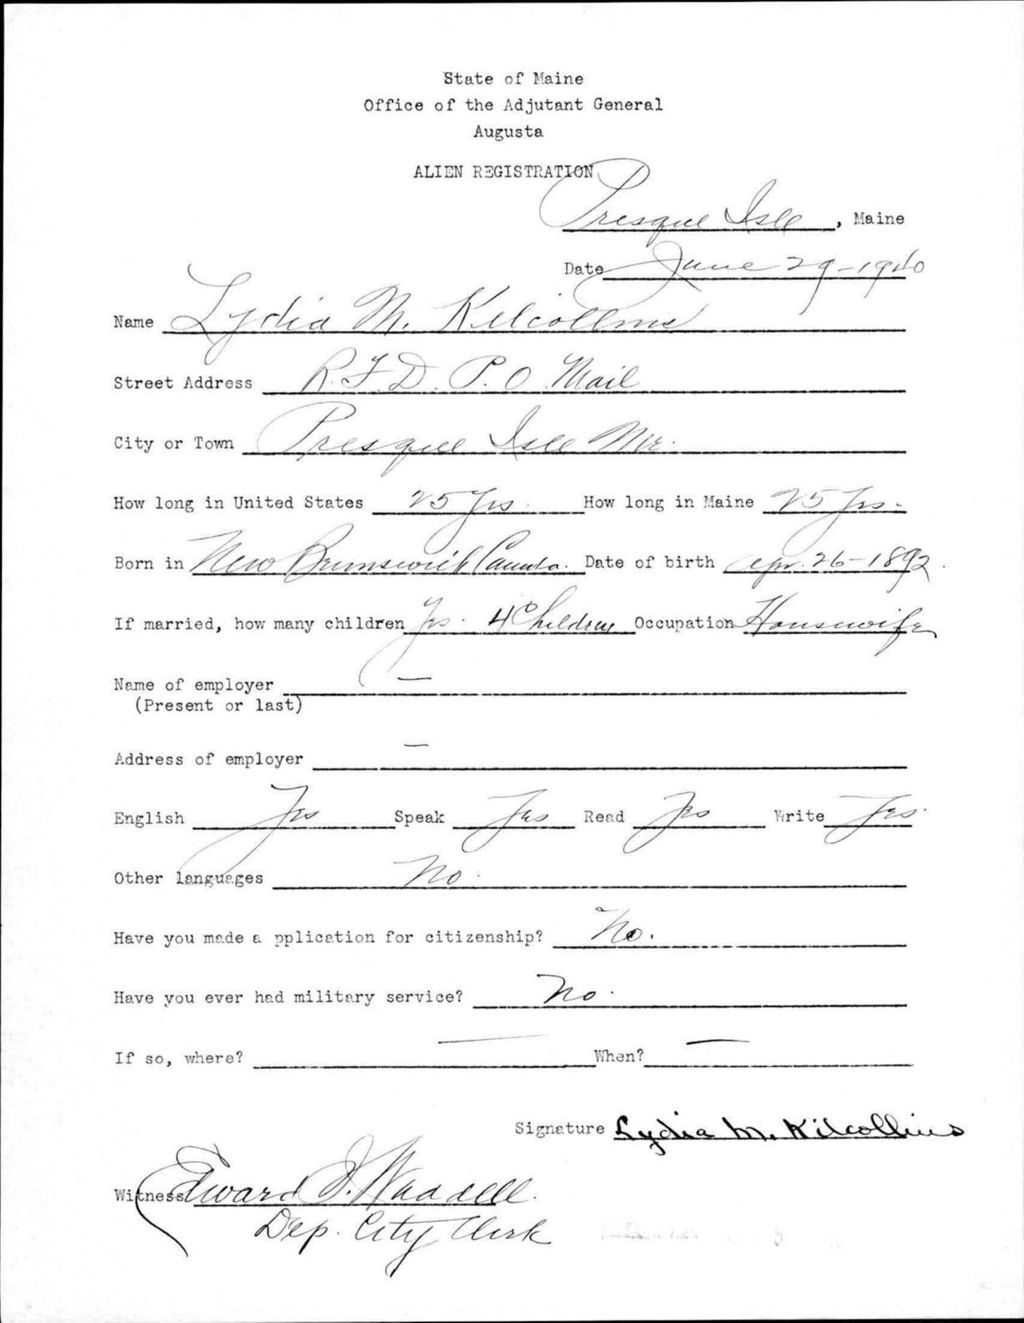 State of Maine
Office of the Adjutant General
Augusta
ALIEN REGISTRATION
Presque Isle, Maine
Date June 29-1940
Name Lydia M. Kilcollins
Street Address R.F.D. P.O. Mail
City or Town Presque Isle Me.
How long in United States 25 Yrs. How long in Maine 25 Yrs.
Born in New Brunswick Canada. Date of birth Apr. 26-1892.
If married, how many children Yes. 4 Children Occupation Housewife
Name of employer —
(Present or last)
Address of employer —
English Yes Speak Yes Read Yes Write Yes.
Other languages No.
Have you made a pplication for citizenship? No.
Have you ever had military service? No.
If so, where? — When? —
Signature Lydia M. Kilcollins
Witness Edward I. Waddell.
Dep. City Clerk